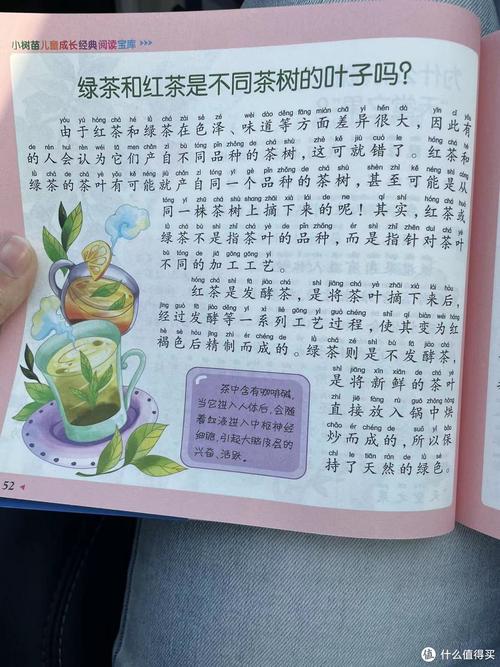 小树苗儿童成长经典阅读宝库 >>>
绿茶和红茶是不同茶树的叶子吗？
yóu yú hóng chá hé lǜ chá zài sè zé wèi dào děng fāng miàn chā yì hěn dà yīn cǐ yǒu
由于红茶和绿茶在色泽、味道等方面差异很大，因此有
de rén huì rèn wéi tā men chǎn zì bù tóng pǐn zhǒng de chá shù zhè kě jiù cuò le hóng chá hé
的人会认为它们产自不同品种的茶树，这可就错了。红茶和
lǜ chá de chá yè yǒu kě néng jiù chǎn zì tóng yí gè pǐn zhǒng de chá shù shèn zhì kě néng shì cóng
绿茶的茶叶有可能就产自同一个品种的茶树，甚至可能是从
tóng yì zhū chá shù shàng zhāi xià lái de ne qí shí hóng chá huò
同一株茶树上摘下来的呢！其实，红茶或
lǜ chá bú shì zhǐ chá yè de pǐn zhǒng ér shì zhǐ zhēn duì chá yè
绿茶不是指茶叶的品种，而是指针对茶叶
bù tóng de jiā gōng gōng yì
不同的加工工艺。
hóng chá shì fā jiào chá shì jiāng chá yè zhāi xià lái hòu
红茶是发酵茶，是将茶叶摘下来后，
jīng guò fā jiào děng yí xì liè gōng yì guò chéng shǐ qí biàn wéi hóng
经过发酵等一系列工艺过程，使其变为红
hè sè hòu jīng zhì ér chéng de lǜ chá zé shì bù fā jiào chá
褐色后精制而成的。绿茶则是不发酵茶，
shì jiāng xīn xiān de chá yè
是将新鲜的茶叶
zhí jiē fàng rù guō zhōng hōng
直接放入锅中烘
chǎo ér chéng de suǒ yǐ bǎo
炒而成的，所以保
chí le tiān rán de lǜ sè
持了天然的绿色。
茶中含有咖啡碱，
当它进入人体后，会随
着血液进入中枢神经
细胞，引起大脑皮层的
兴奋、活跃。
52
值 什么值得买